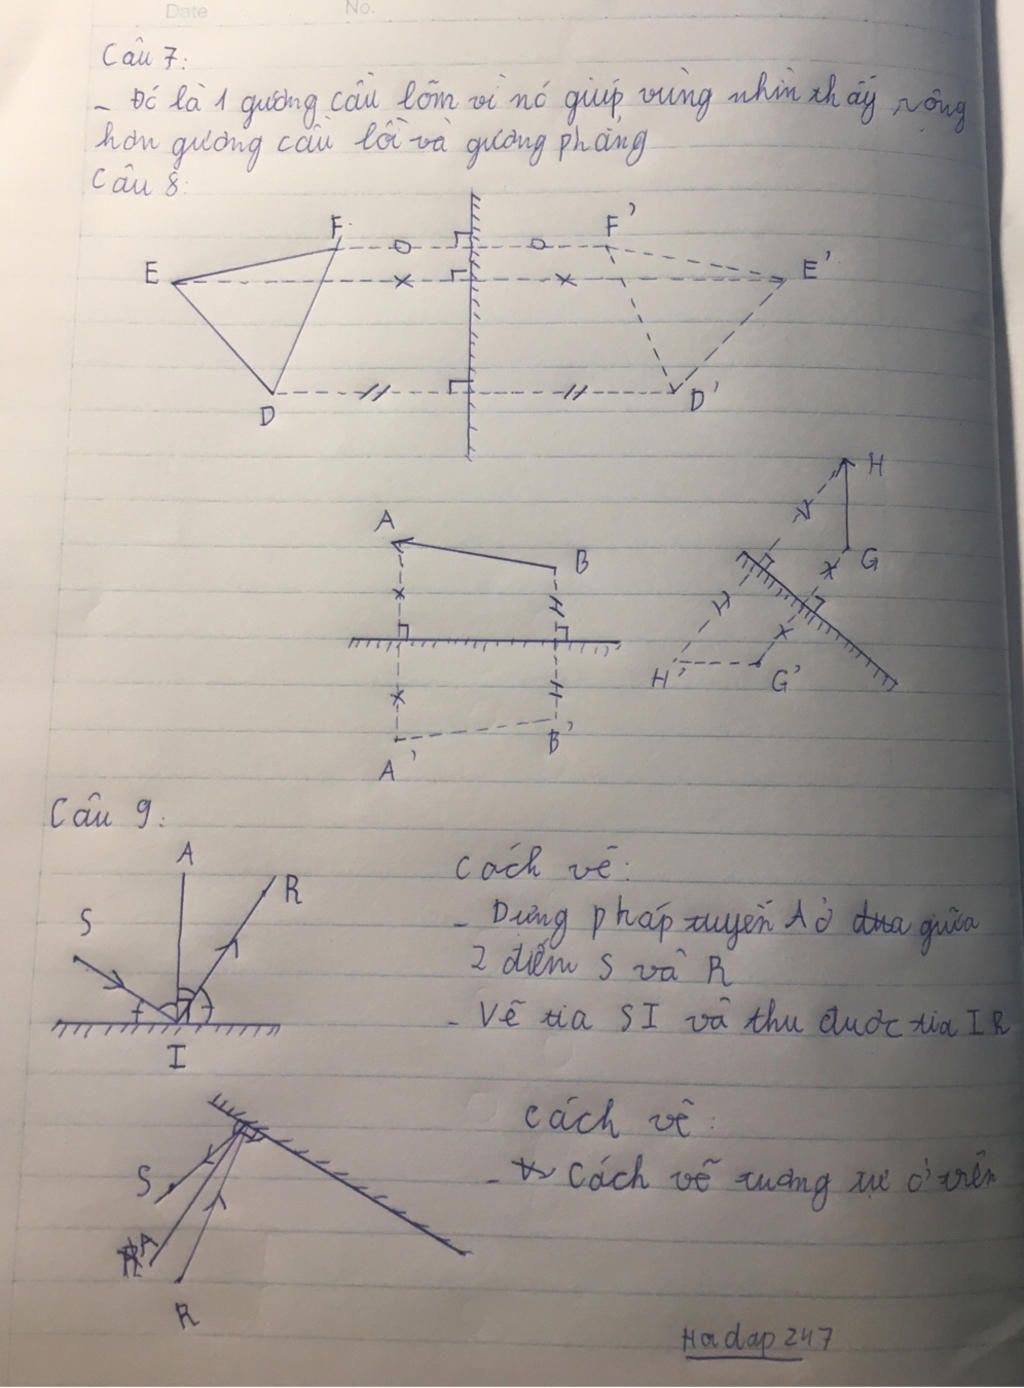 Date No.
Câu 7:
- Đó là 1 gương cầu lõm vì nó giúp vùng nhìn thấy rộng
hơn gương cầu lồi và gương phẳng
Câu 8:
F F'
E E'
D D'
H
A
B G
H' G'
A' B'
Câu 9:
A
R
S
I
Cách vẽ:
- Dựng pháp tuyến A ở giữa
2 điểm S và R
- Vẽ tia SI và thu được tia IR
Cách vẽ:
- Cách vẽ tương tự ở trên
S
A
R
Hoidap247